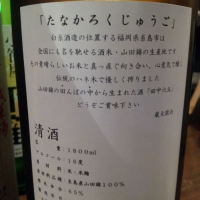 「たなかろくじゅうご」
白糸酒造の位置する福岡県糸島市は
全国にも名を馳せる酒米・山田錦の生産地です
その素晴らしいお米と真っ直ぐ向き合い、心意気で醸し
伝統のハネ木で優しく搾りました
山田錦の田んぼの中から生まれた酒「田中六五」
どうぞご賞味下さい
蔵元敬白
清酒
量 1800ml
度
米・米麹
糸島産山田錦100%